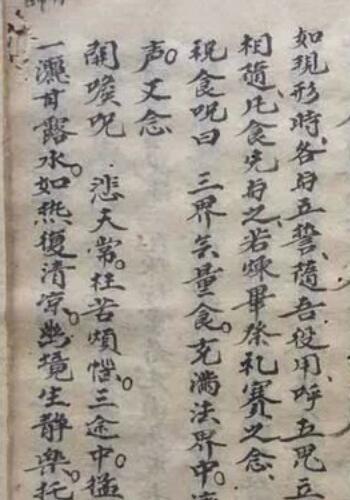 如現形時、各与五誓、隨吾役用、呼五鬼五
相隨、凡食先与之、若煉畢祭礼賽之念、
祝食呪曰 三界無量食。充滿法界中。
声。又念
開喉呪 悲夫常在苦煩惱。三途中。猛
一灑甘露水。如熱復清凉。幽境生靜樂。托